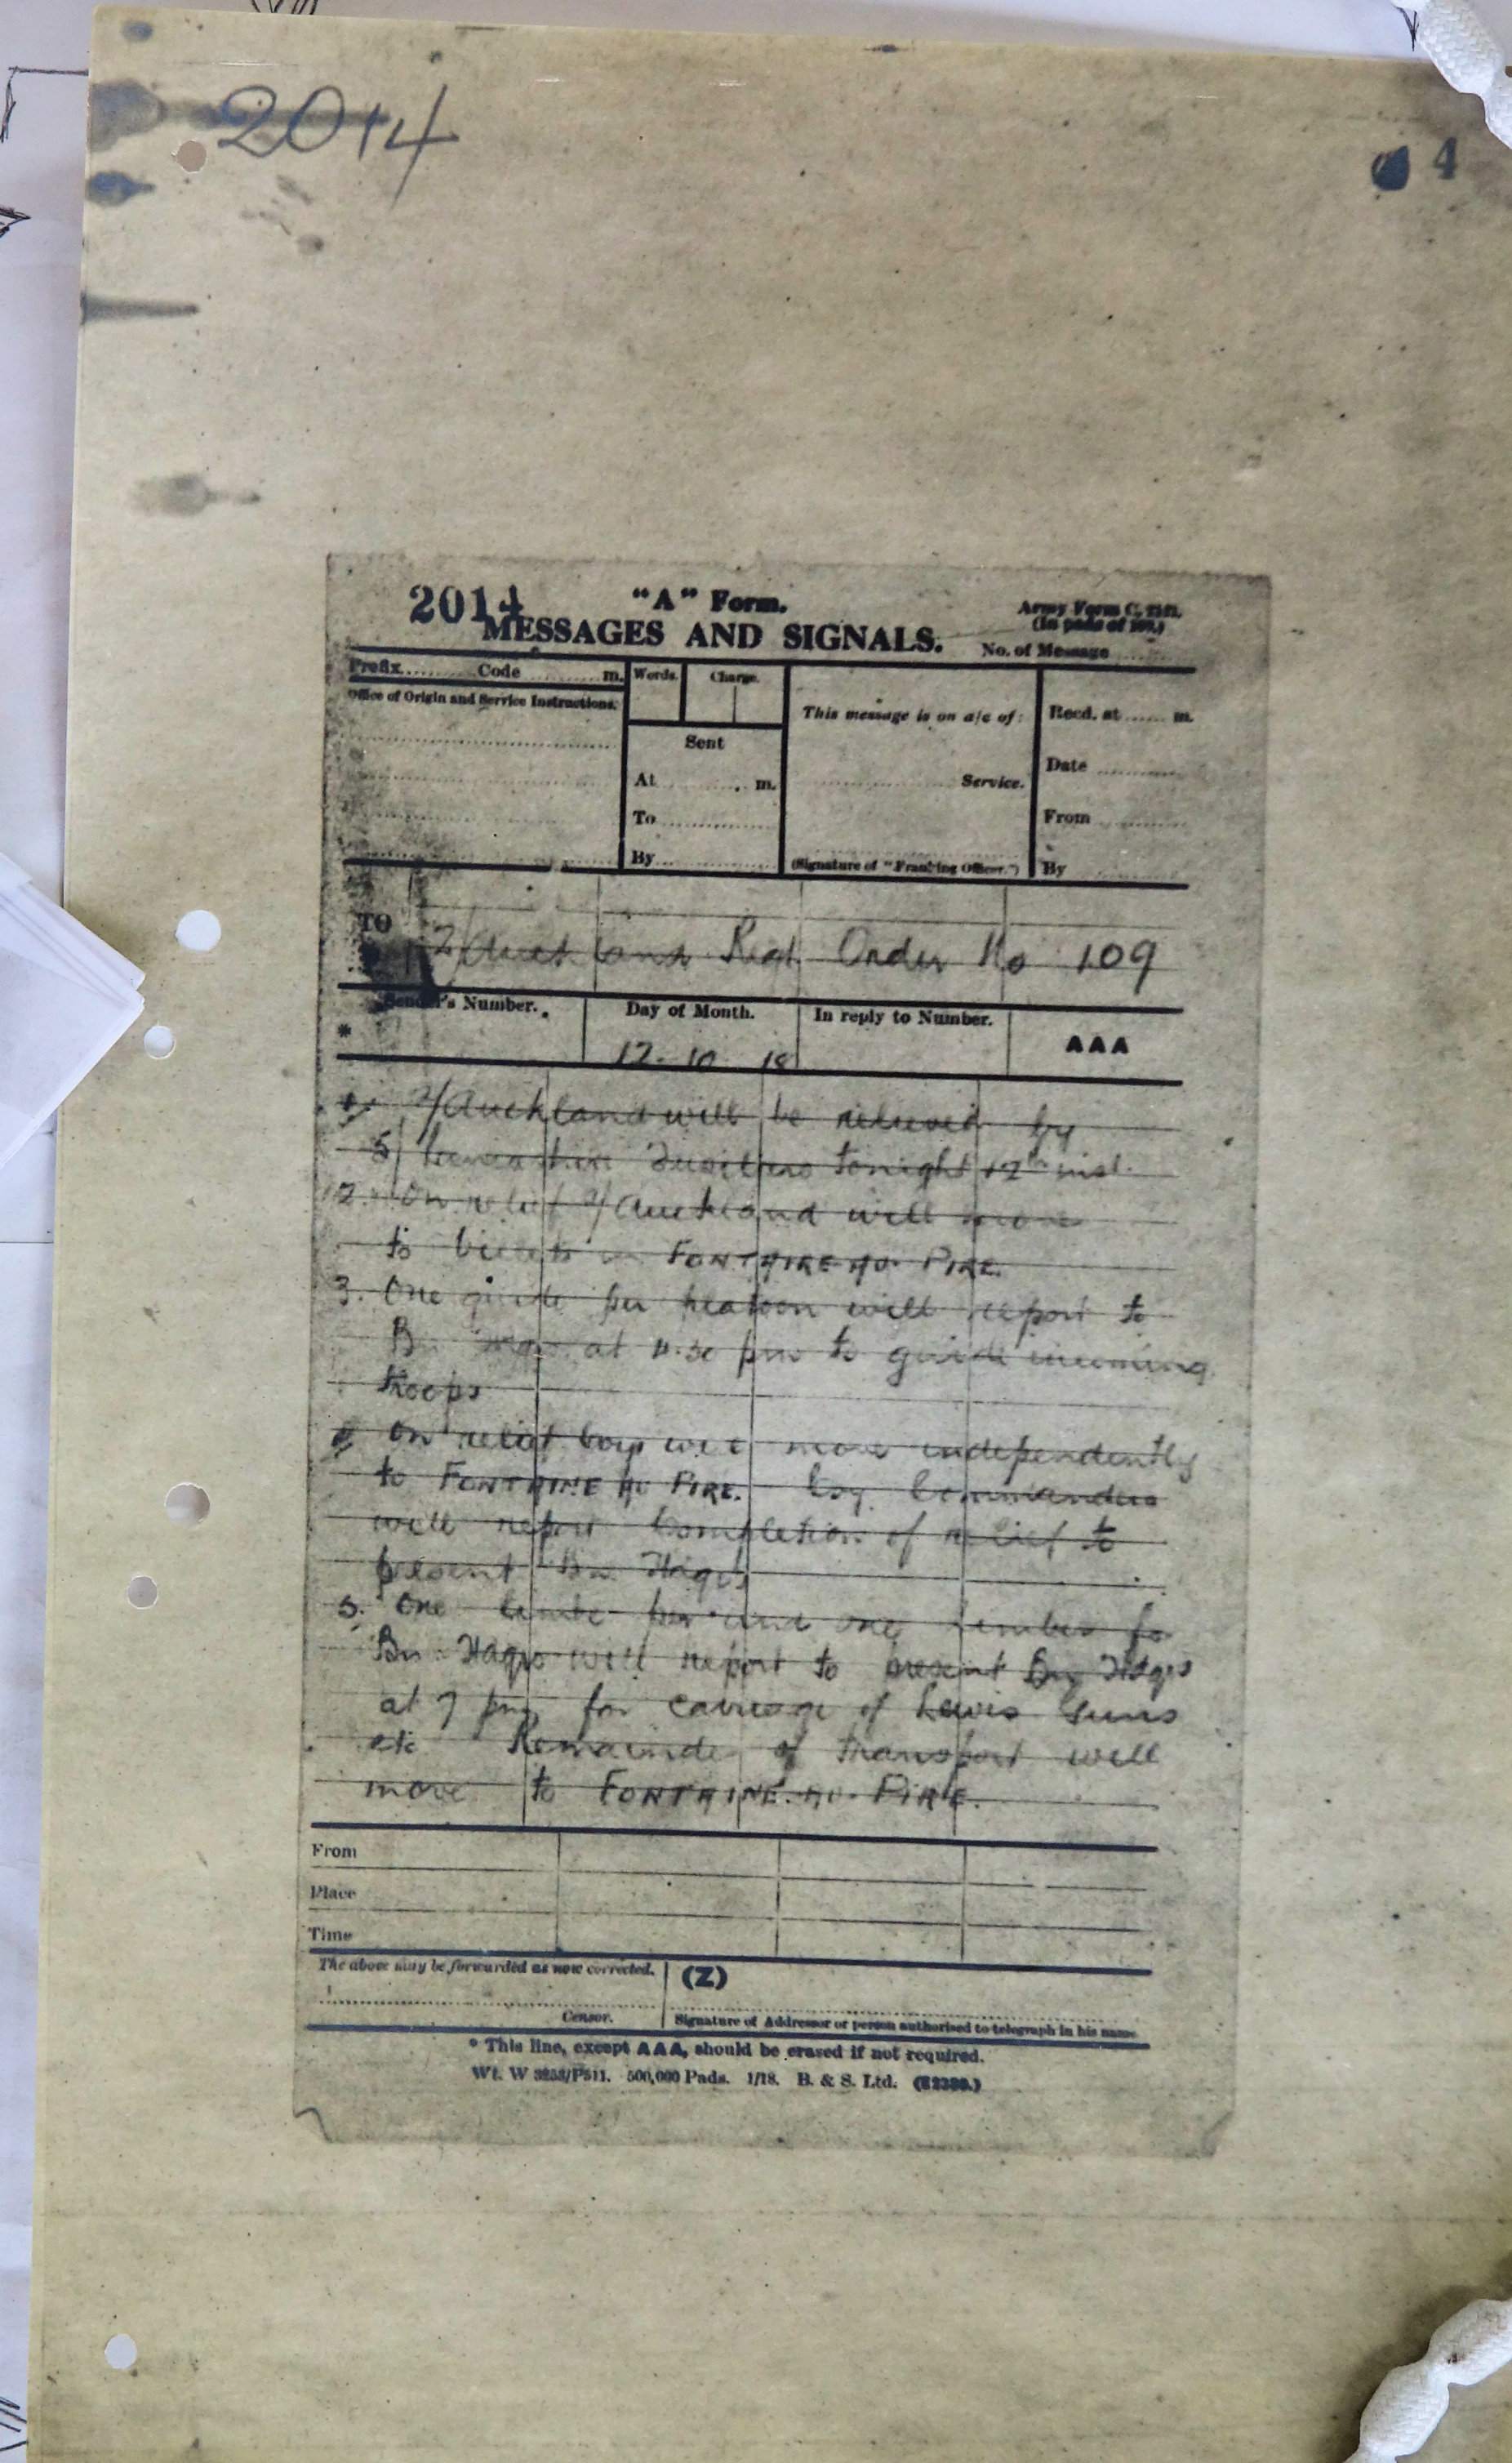 2014
4
2014
"A" Form.
MESSAGES AND SIGNALS.
Army Form C.
(In pads of 100.)
No. of Message
Prefix........Code............m.
Words.
Charge.
Office of Origin and Service Instructions.
This message is on a/c of:
Recd. at.......m.
Sent
At............m.
Date............
Service.
To............
From............
By............
(Signature of "Franking Officer.")
By............
TO
2/Auckland Regt. Order No 109
Sender's Number.
Day of Month.
In reply to Number.
AAA
*
12. 10 18
1. 2/Auckland will be relieved by
5/ Lancashire Fusiliers tonight 12th inst.
2. On relief 2/Auckland will move
to billets in FONTAINE AU PIRE.
3. One guide per platoon will report to
Bn Hqrs at pm to guide incoming
troops
4. On relief Coys will move independently
to FONTAINE AU PIRE. Coy. Commanders
will report completion of relief to
present Bn. Hdqrs
5. One limber per and one limber for
Bn Hdqrs will report to present Bn Hdqrs
at 7 pm for carriage of Lewis Guns
etc Remainder of transport will
move to FONTAINE. AU. PIRE.
From
Place
Time
The above may be forwarded as now corrected.
(Z)
Censor.
Signature of Addressor or person authorised to telegraph in his name
* This line, except AAA, should be erased if not required.
Wt. W 3253/P511. 500,000 Pads. 1/18. B. & S. Ltd.